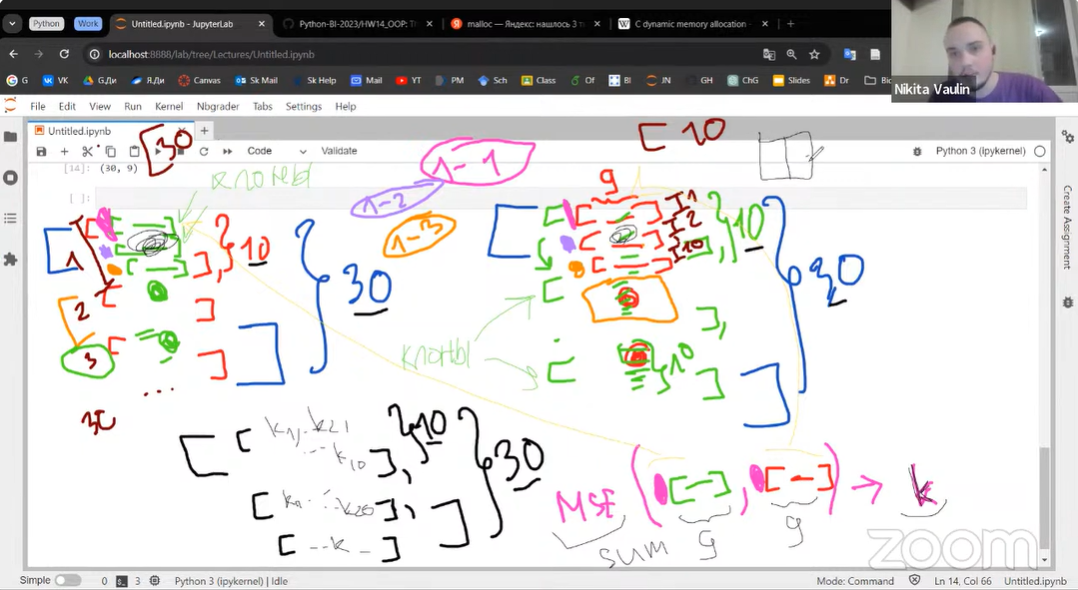 Python Work Untitled.ipynb - JupyterLab Python-BI-2023/HW14_OOP: T malloc — Яндекс: нашлось 3 т C dynamic memory allocation -
localhost:8888/lab/tree/Lectures/Untitled.ipynb
G VK G.Ди Я.Ди Canvas Sk Mail Sk Help Mail YT PM Sch Class Of BI JN GH ChG Slides Dr
Nikita Vaulin
File Edit View Run Kernel Nbgrader Tabs Settings Help
Untitled.ipynb
Code Validate Python 3 (ipykernel)
[14]: (30, 9)
[ ]:
[30
[10
клоны
1-1
1-2
1-3
9
1
2
10
10
30
1
2
3
...
30
10
30
клоны
10
k1, k21
... k10
],
10
30
[
... k20
],
[ ... k ]
MSE ([—], [—]) → k
sum 9 9
zoom
Create Assignment
Simple 0 3 Python 3 (ipykernel) | Idle Mode: Command Ln 14, Col 66 Untitled.ipynb